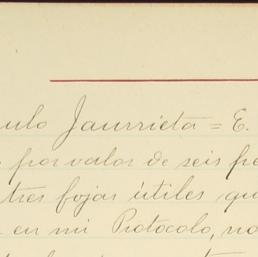 ulo Jaurrieta = E.
por valor de seis pe
tres fojas útiles qu
en mi Protocolo, no